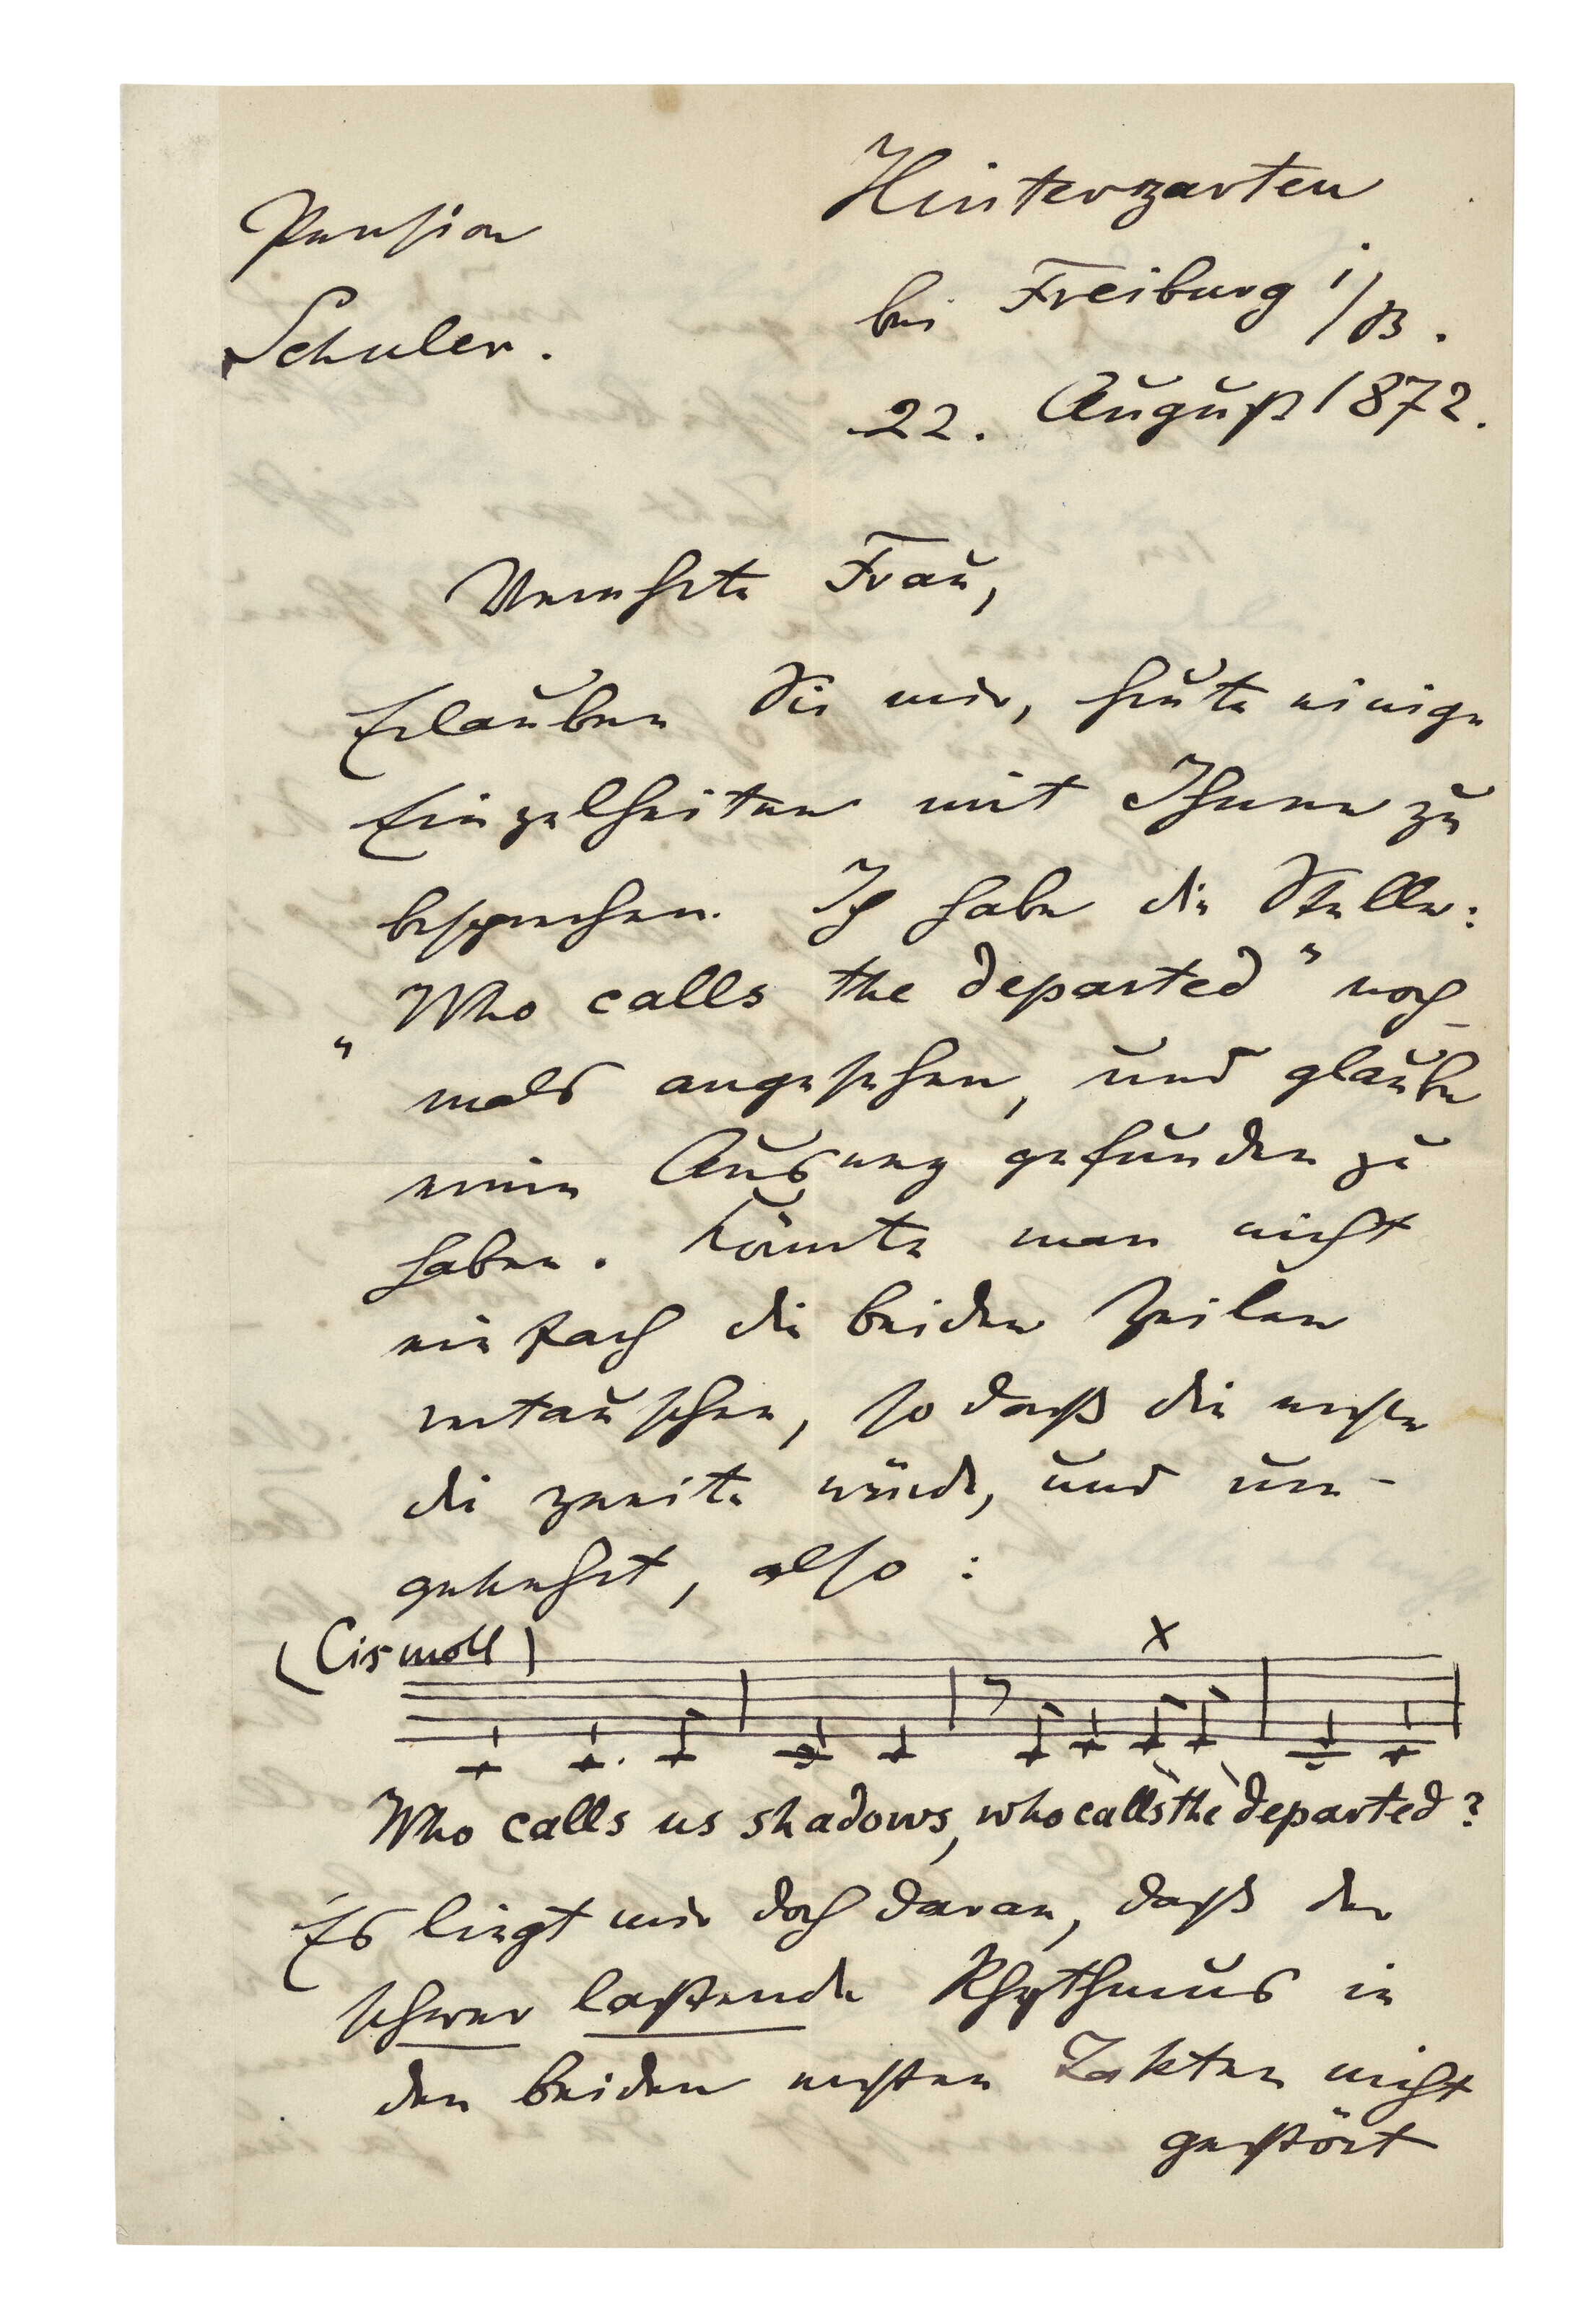 Hinterzarten
Pension
bei Freiburg i/B.
Schuler.
22. August 1872.
Verehrte Frau,
Erlauben Sie mir, heute einige
Einzelheiten mit Ihnen zu
besprechen. Ich habe die Stelle:
„Who calls the departed" noch-
mals angesehen, und glaube
einen Ausweg gefunden zu
haben. Könnte man nicht
einfach die beiden Zeilen
vertauschen, so daß die erste
die zweite würde, und um-
gekehrt, also:
(Cis moll) x
Who calls us shadows, who calls the departed?
Es liegt mir doch daran, daß der
schwer lastende Rhythmus in
den beiden ersten Takten nicht
gestört